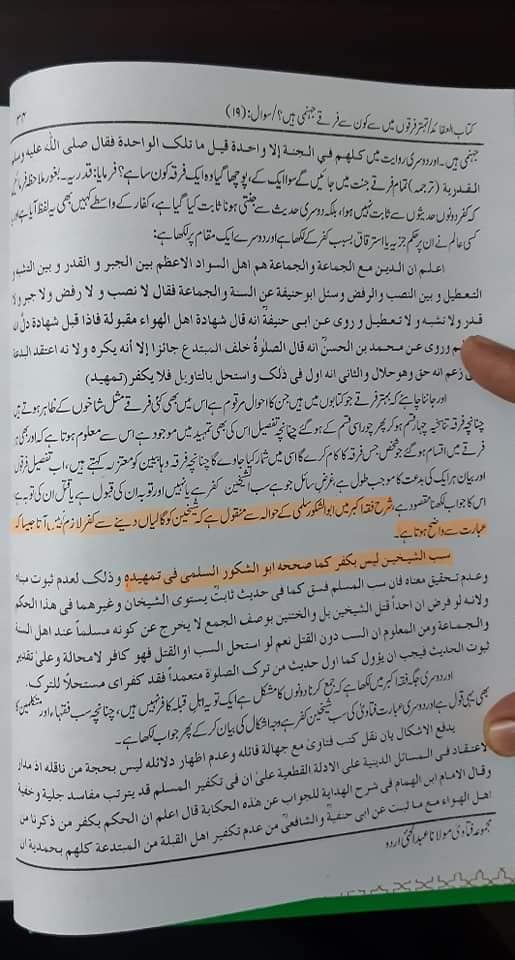 کتاب العقائد/تہتر فرقوں میں سے کون سے فرقے جہنمی ہیں؟/سوال: (۱۹)
جہنمی ہیں۔ اور دوسری روایت میں کلهم في الجنة إلا واحدة قيل ما تلك الواحدة فقال صلى الله عليه وسلم
القدرية (ترجمہ) تمام فرقے جنت میں جائیں گے سوا ایک کے، پوچھا گیا وہ ایک فرقہ کون سا ہے؟ فرمایا: قدریہ۔ بغور ملاحظہ فرمائیں
کہ کفر دونوں حدیثوں سے ثابت نہیں ہوا، بلکہ دوسری حدیث سے جنتی ہونا ثابت کیا گیا ہے، کفار کے واسطے کہیں بھی یہ لفظ آیا ہے اور
کسی عالم نے ان پر حکم جزیہ یا استرقاق بسبب کفر کے لکھا ہے اور دوسرے ایک مقام پر لکھا ہے:
اعلم ان الدين مع الجماعة والجماعة هم اهل السواد الاعظم بين الجبر و القدر و بين التشبه و
التعطيل و بين النصب والرفض وسئل ابو حنيفة عن السنة والجماعة فقال لا نصب و لا رفض ولا جبر ولا
قدر ولا تشبه و لا تعطيل و روى عن ابى حنيفة انه قال شهادة اهل الهواء مقبولة فاذا قبل شهادة دل
وروى عن محمد بن الحسن انه قال الصلوة خلف المبتدع جائزا إلا أنه يكره ولا نه اعتقد البدعة
زعم انه حق وهو حلال والثانى انه اول فى ذلك واستحل بالتاويل فلا يكفر (تمهيد)
اور جاننا چاہئے کہ بہتر فرقے جو کتابوں میں ہیں جن کا احوال مرقوم ہے اس میں بھی کئی فرقے مثل شاخوں کے ظاہر ہوتے ہیں
چنانچہ فرقہ تناسخیہ چہار قسم ہوکر پھر چوراسی قسم کے ہوگئے چنانچہ تفصیل اس کی بھی تمہید میں موجود ہے اس سے معلوم ہوتا ہے کہ اور بھی ہر
فرقے میں اقسام ہوگئے جو شخص جس فرقہ کا کام کرے گا اسی میں شمار کیا جاوے گا چنانچہ فرقہ وہابیین کو معتزلہ کہتے ہیں، اب تفصیل فرقوں
اور بیان ہر ایک کی بدعت کا موجب طول ہے غرض سائل جو ہے سب الشیخین کفر ہے یا نہیں اور توبہ ان کی قبول ہے یا قتل ان کی توبہ ہے
اس کا جواب لکھنا مقصود ہے، شرح فقہ اکبر میں ابوالشکور سلمی کے حوالہ سے منقول ہے کہ شیخین کو گالیاں دینے سے کفر لازم نہیں آتا جیسا کہ
عبارت سے واضح ہوتا ہے۔
سب الشيخين ليس بكفر كما صححه ابو الشكور السلمى فى تمهيده و ذلك لعدم ثبوت مبناه
وعدم تحقيق معناه فان سب المسلم فسق كما فى حديث ثابت يستوى الشيخان وغيرهما فى هذا الحكم
ولانه لو فرض ان احداً قتل الشيخين بل والختنين بوصف الجمع لا يخرج عن كونه مسلماً عند اهل السنة
والجماعة ومن المعلوم ان السب دون القتل نعم لو استحل السب او القتل فهو كافر لامحالة وعلى تقدير
ثبوت الحديث فيجب ان يؤول كما اول حديث من ترك الصلوة متعمداً فقد كفر اى مستحلاً للترك.
اور دوسری جگہ فقہ اکبر میں لکھا ہے کہ جمع کرنا دونوں کا مشکل ہے ایک تو یہ اہل قبلہ کافر نہیں ہیں، چنانچہ سب فقہاء اور متکلمین کا
بھی یہی قول ہے اور دوسری عبارت فتاویٰ کی سب شیخین کفر ہے وجہ اشکال کی بیان کر کے پھر جواب لکھا ہے۔
يدفع الاشكال بان نقل كتب فتاوى مع جهالة قائله وعدم اظهار دلائله ليس بحجة من ناقله اذ مدار
لاعتقاد فى المسائل الدينية على الادلة القطعية على ان فى تكفير المسلم قد يترتب مفاسد جلية وخفية
وقال الامام ابن الهمام فى شرح الهداية للجواب عن هذه الحكاية قال اعلم ان الحكم بكفر من ذكرنا من
اهل الهواء مع ما ثبت عن ابى حنيفة والشافعى من عدم تكفير اهل القبلة من المبتدعة كلهم بحمدية ان
مجموعہ فتاویٰ مولانا عبدالحئی اردو